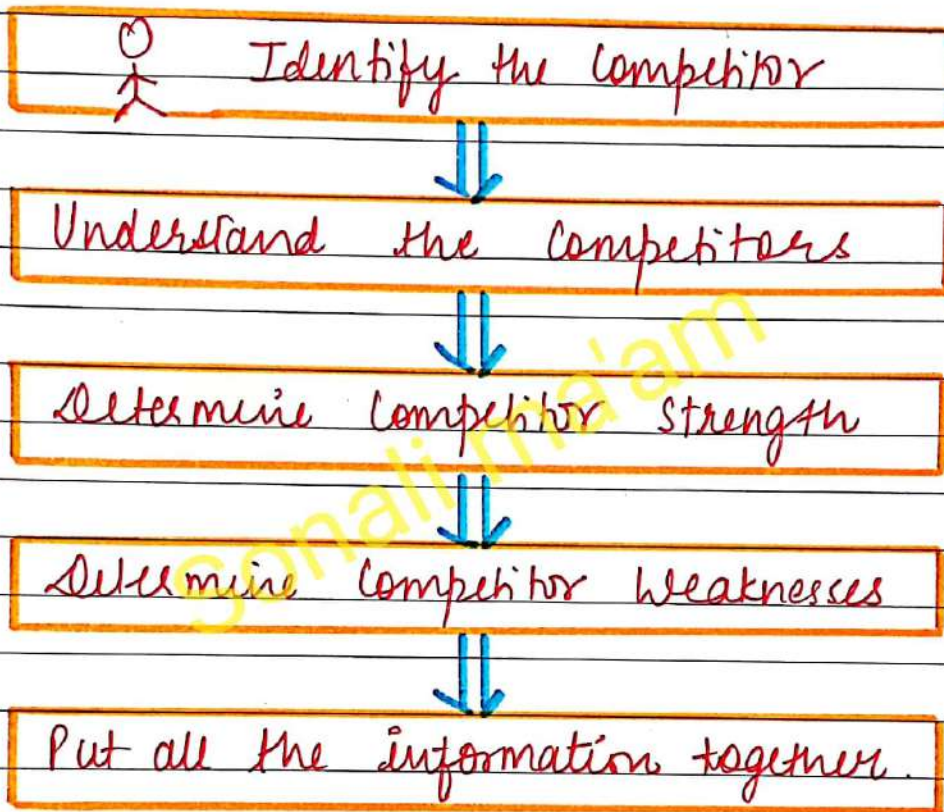 Identify the Competitor
Understand the Competitors
Determine Competitor Strength
Sonali ma'am
Determine Competitor Weaknesses
Put all the information together.